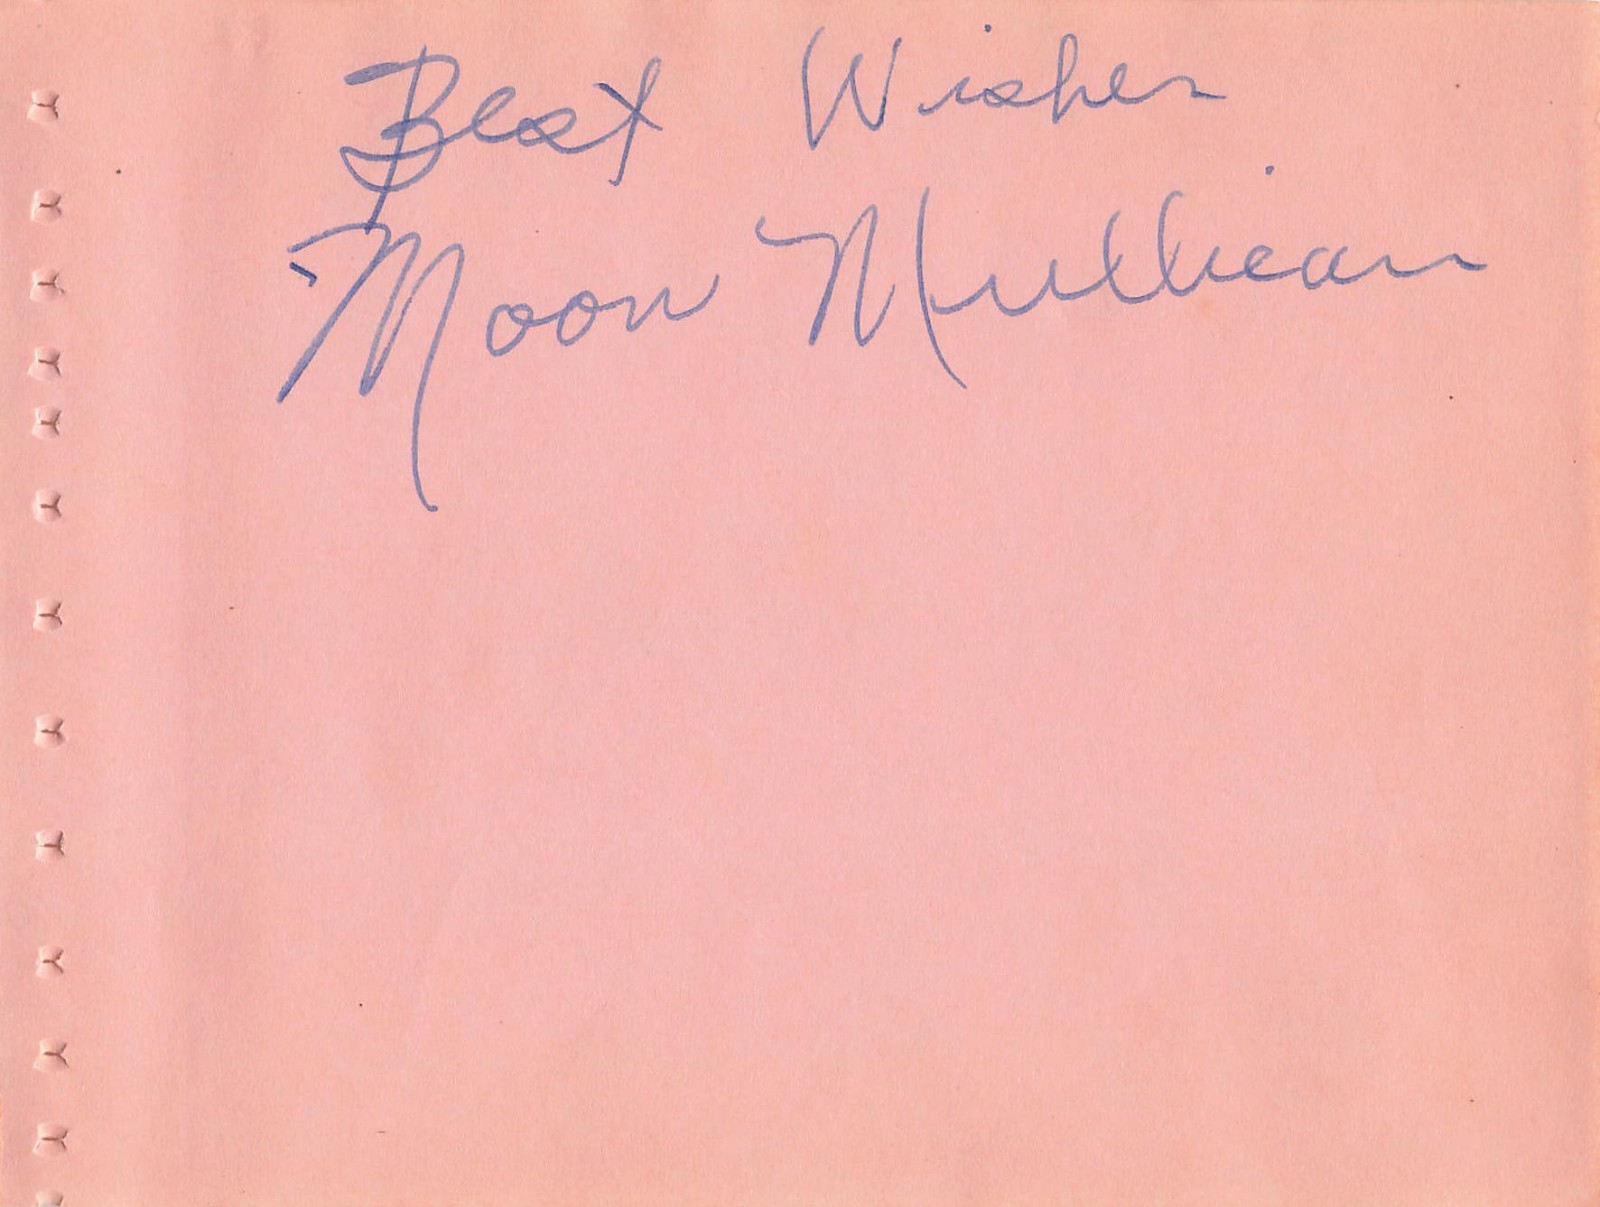 Best Wishes
Moon Mullican